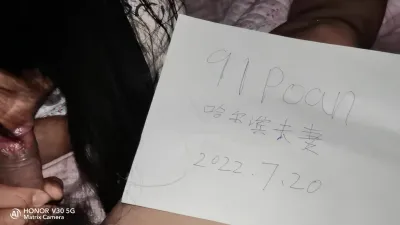 91Poan
哈尔滨夫妻
2022.7.20
HONOR V30 5G
Matrix Camera